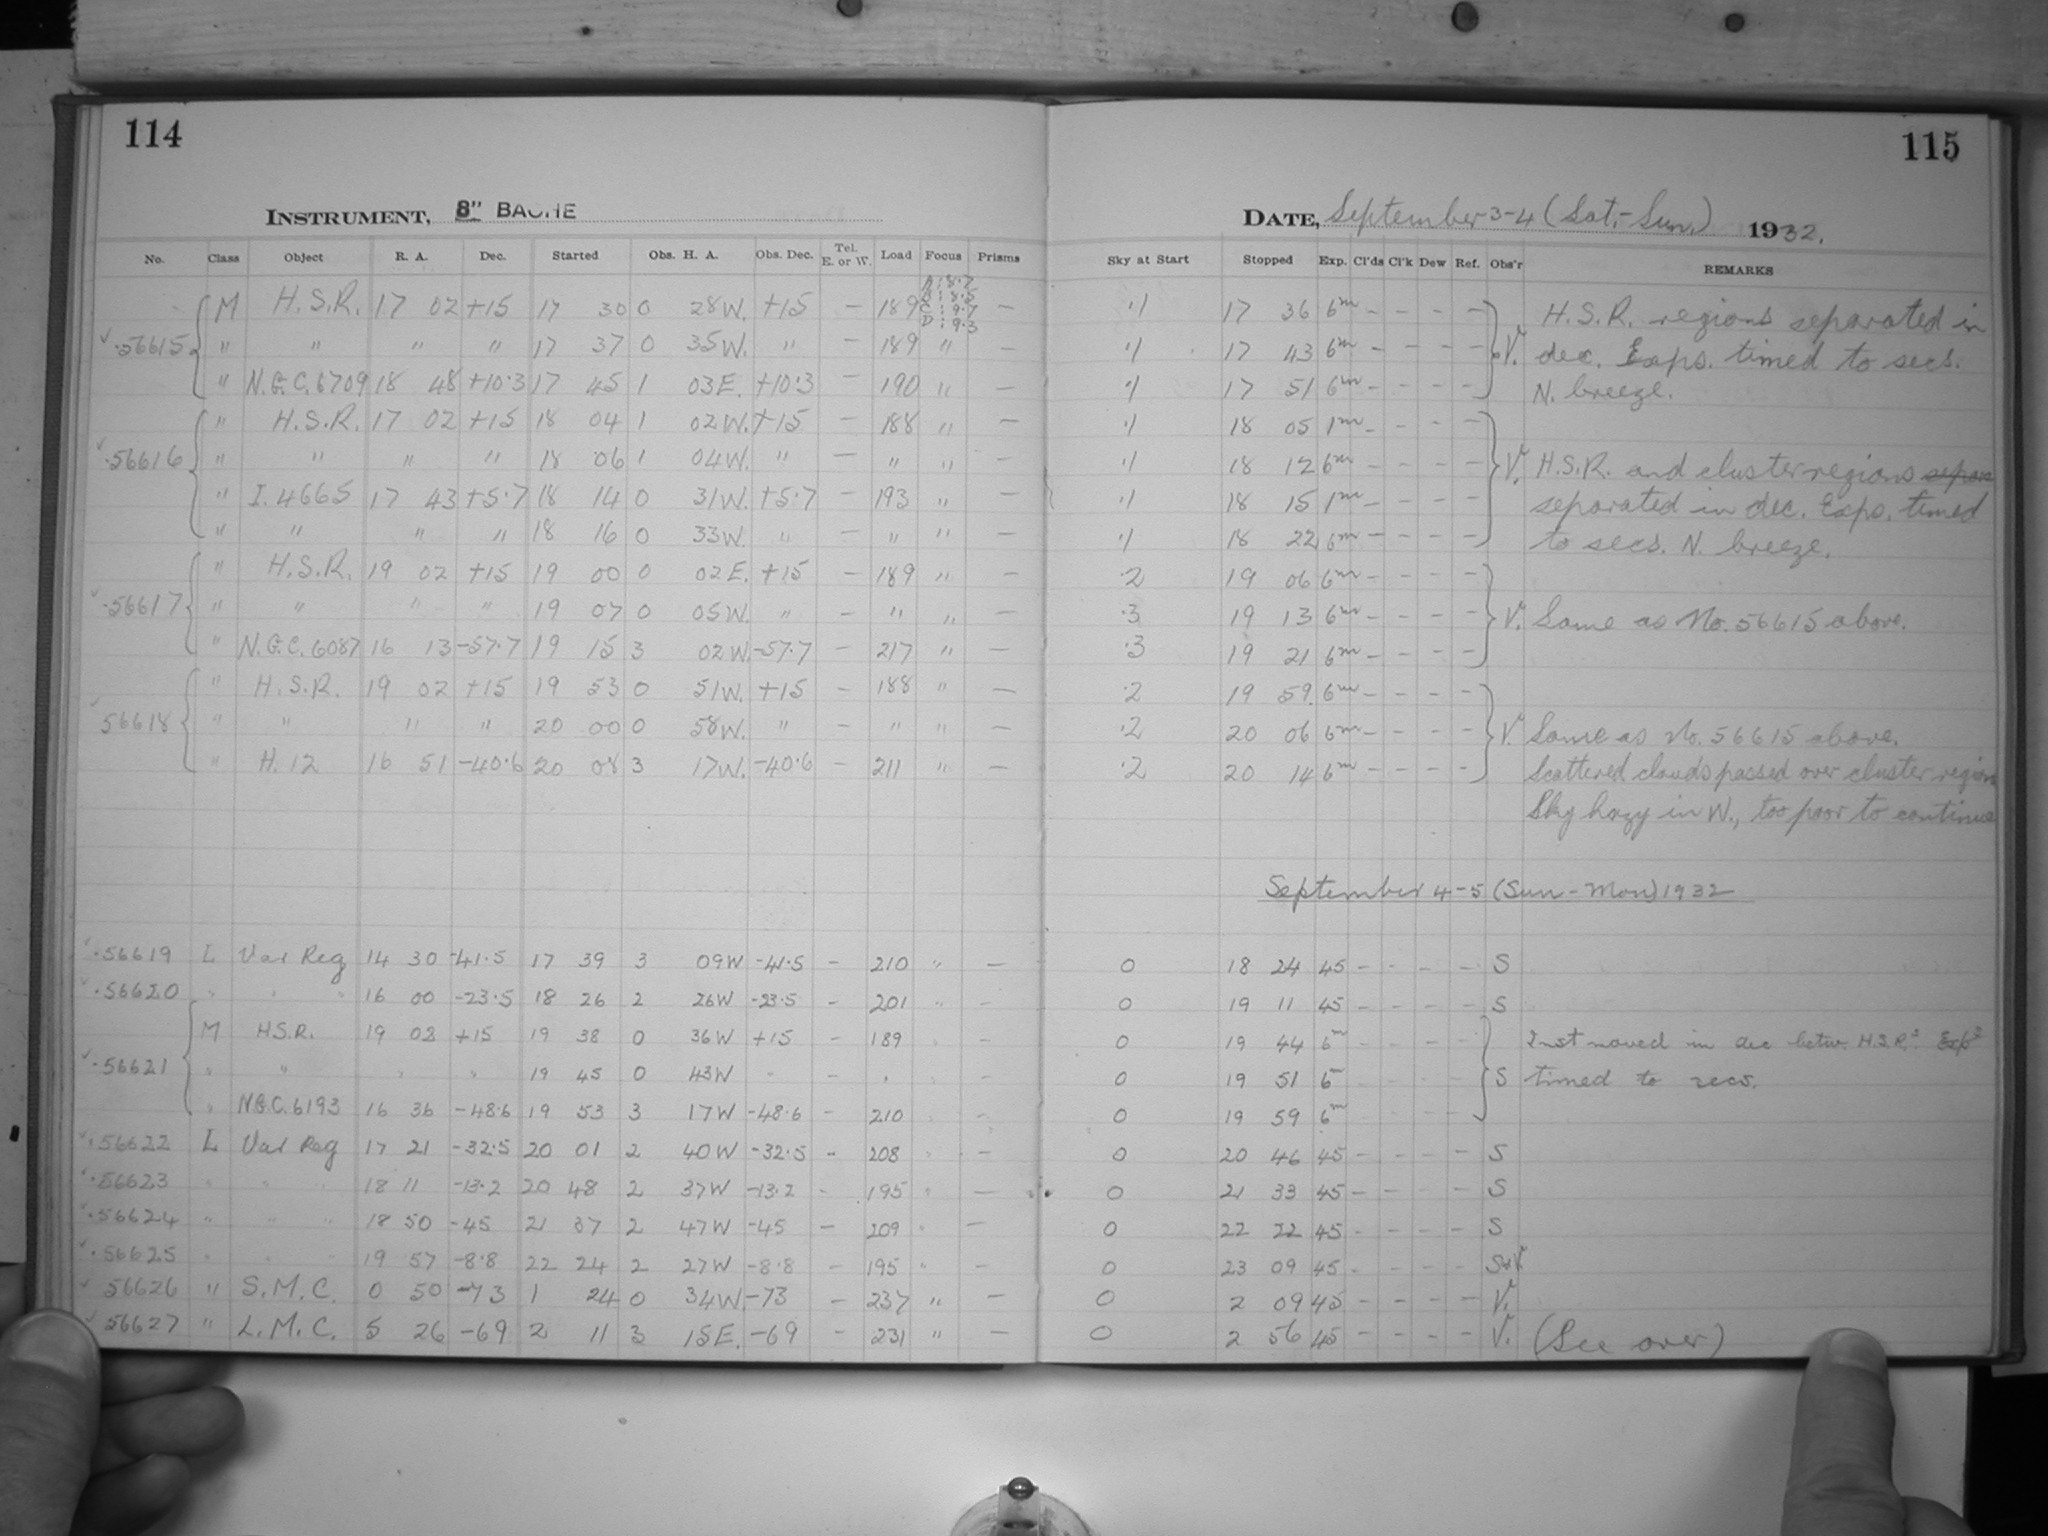 114
INSTRUMENT, 8" BACHE
No. Class Object R. A. Dec. Started Obs. H. A. Obs. Dec. Tel. E. or W. Load Focus Prisms
M H.S.R. 17 02 +15 17 30 0 28W. +15 — 189 A: 8.7 B: 8.5 C: 9.7 D: 9.3 —
.56615 " " " " 17 37 0 35W. " — 189 " —
" N.G.C.6709 18 48 +10.3 17 45 1 03E. +10.3 — 190 " —
" H.S.R. 17 02 +15 18 04 1 02W. +15 — 188 " —
.56616 " " " " 18 06 1 04W. " — " " —
" I.4665 17 43 +5.7 18 14 0 31W. +5.7 — 193 " —
" " " " 18 16 0 33W. " — " " —
" H.S.R. 19 02 +15 19 00 0 02E. +15 — 189 " —
.56617 " " " " 19 07 0 05W. " — " " —
" N.G.C.6087 16 13 -57.7 19 15 3 02W. -57.7 — 217 " —
" H.S.R. 19 02 +15 19 53 0 51W. +15 — 188 " —
56618 " " " " 20 00 0 58W. " — " " —
" H.12 16 51 -40.6 20 08 3 17W. -40.6 — 211 " —
.56619 L Var Reg 14 30 -41.5 17 39 3 09W -41.5 — 210 " —
.56620 " " " 16 00 -23.5 18 26 2 26W -23.5 — 201 " —
M H.S.R. 19 02 +15 19 38 0 36W +15 — 189 " —
.56621 " " " " 19 45 0 43W " — " " —
" N.G.C.6193 16 36 -48.6 19 53 3 17W -48.6 — 210 " —
.56622 L Var Reg 17 21 -32.5 20 01 2 40W -32.5 — 208 " —
.56623 " " " 18 11 -13.2 20 48 2 37W -13.2 — 195 " —
.56624 " " " 18 50 -45 21 37 2 47W -45 — 209 " —
.56625 " " " 19 57 -8.8 22 24 2 27W -8.8 — 195 " —
56626 " S.M.C. 0 50 -73 1 24 0 34W. -73 — 237 " —
56627 " L.M.C. 5 26 -69 2 11 3 15E. -69 — 231 " —
115
DATE, September 3-4 (Sat.-Sun.) 1932.
Sky at Start Stopped Exp. Cl'ds Cl'k Dew Ref. Obs'r REMARKS
.1 17 36 6m — — — — H.S.R. regions separated in
.1 17 43 6m — — — — V. dec. Exps. timed to secs.
.1 17 51 6m — — — — N. breeze.
.1 18 05 1m — — — —
.1 18 12 6m — — — — V. H.S.R. and cluster regions separa
.1 18 15 1m — — — — separated in dec. Exps. timed
.1 18 22 6m — — — — to secs. N. breeze.
.2 19 06 6m — — — —
.3 19 13 6m — — — — V. Same as No. 56615 above.
.3 19 21 6m — — — —
.2 19 59 6m — — — —
.2 20 06 6m — — — — V. Same as No. 56615 above.
.2 20 14 6m — — — — Scattered clouds passed over cluster region
Sky hazy in W., too poor to continue
September 4-5 (Sun-Mon) 1932
0 18 24 45 — — — — S
0 19 11 45 — — — — S
0 19 44 6m — — — — Inst moved in dec betw. H.S.R.s Exps
0 19 51 6 — — — — S timed to secs.
0 19 59 6m — — — —
0 20 46 45 — — — — S
0 21 33 45 — — — — S
0 22 22 45 — — — — S
0 23 09 45 — — — — S+V
0 2 09 45 — — — — V.
0 2 56 45 — — — — V. (See over)